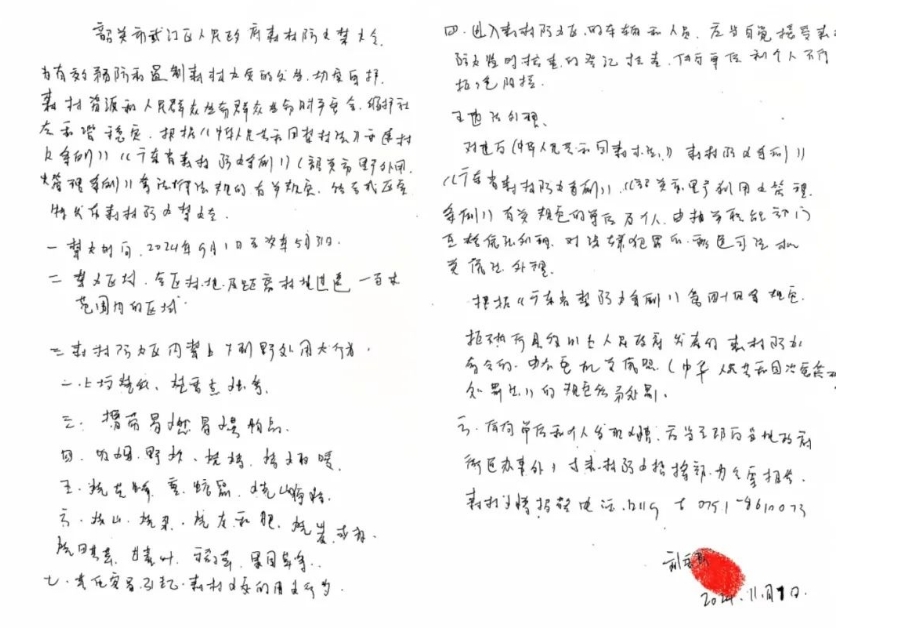 韶关市武江区人民政府森林防火禁火令
为有效预防和遏制森林火灾的发生,切实保护
森林资源和人民群众生命群众生命财产安全,维护社
会和谐稳定,根据《中华人民共和国森林法》《森林防
火条例》《广东省森林防火条例》《韶关市野外用
火管理条例》等法律法规的有关规定,结合我区实
特发布森林防火禁火令。
一 禁火时间,2024年9月1日至次年5月31日。
二 禁火区域,全区林地及距离林地边缘一百米
范围内的区域
三 森林防火区内禁止下列野外用火行为。
一、上坟烧纸、烧香点烛等。
三、携带易燃易爆物品。
四、吸烟、野炊、烧烤、烤火取暖。
五、烧黄蜂、熏蛇鼠、烧山狩猎。
六、炼山、烧杂、烧灰积肥、烧荒
烧田基草、甘蔗叶、稻草、果园草等。
七、其他容易引起森林火灾的用火行为。
四、进入森林防火区的车辆和人员,应当自觉接受森
防火检查的登记检查,任何单位和个人不得
拒绝阻挠。
五 违法处理。
对违反《中华人民共和国森林法》《森林防火条例》
《广东省森林防火条例》,《韶关市野外用火管理
条例》有关规定的单位及个人,由相关职能部门
依法处理,对涉嫌犯罪的,移送司法机
关依法处理。
根据《广东省森林防火条例》第四十四条规定
拒绝执行县级以上人民政府发布的森林防火
命令的,由公安机关依照《中华人民共和国治安管理
处罚法》的规定给予处罚。
六、任何单位和个人发现火情,应当立即向当地政府
(街道办事处)或森林防火指挥部办公室报告。
森林火情报警电话,12119 或 0751-8610073
2024.11.月1日.